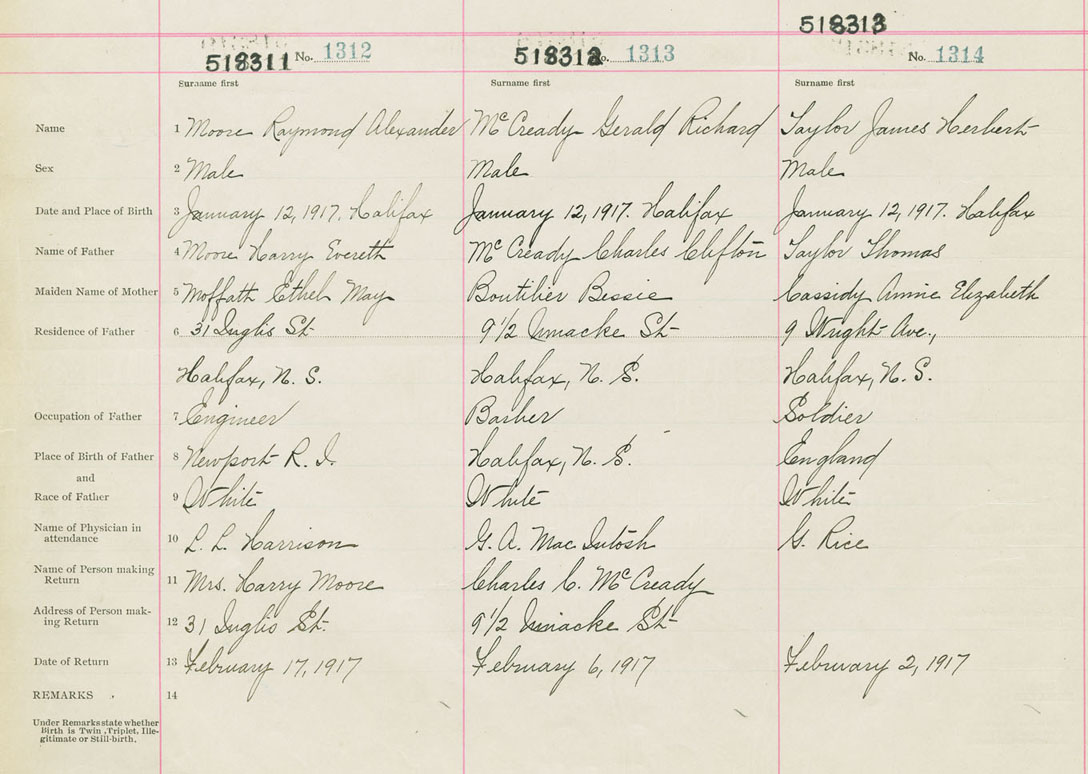 518313
518311 No. 1312 518312 No. 1313 No. 1314
Surname first Surname first Surname first
Name 1 Moore Raymond Alexander McCready Gerald Richard Taylor James Herbert
Sex 2 Male Male Male
Date and Place of Birth 3 January 12, 1917. Halifax January 12, 1917. Halifax January 12, 1917. Halifax
Name of Father 4 Moore Harry Evereth McCready Charles Clifton Taylor Thomas
Maiden Name of Mother 5 Moffath Ethel May Boutilier Bessie Cassidy Annie Elizabeth
Residence of Father 6 31 Inglis St 9 1/2 Uniacke St 9 Wright Ave.,
Halifax, N. S. Halifax, N. S. Halifax, N. S.
Occupation of Father 7 Engineer Barber Soldier
Place of Birth of Father 8 Newport R. I. Halifax, N. S. England
and
Race of Father 9 White White White
Name of Physician in
attendance 10 L. L. Harrison G. A. MacIntosh G. Rice
Name of Person making
Return 11 Mrs. Harry Moore Charles C. McCready
Address of Person mak-
ing Return 12 31 Inglis St. 9 1/2 Uniacke St
Date of Return 13 February 17, 1917 February 6, 1917 February 2, 1917
REMARKS 14
Under Remarks state whether
Birth is Twin, Triplet, Ille-
gitimate or Still-birth.